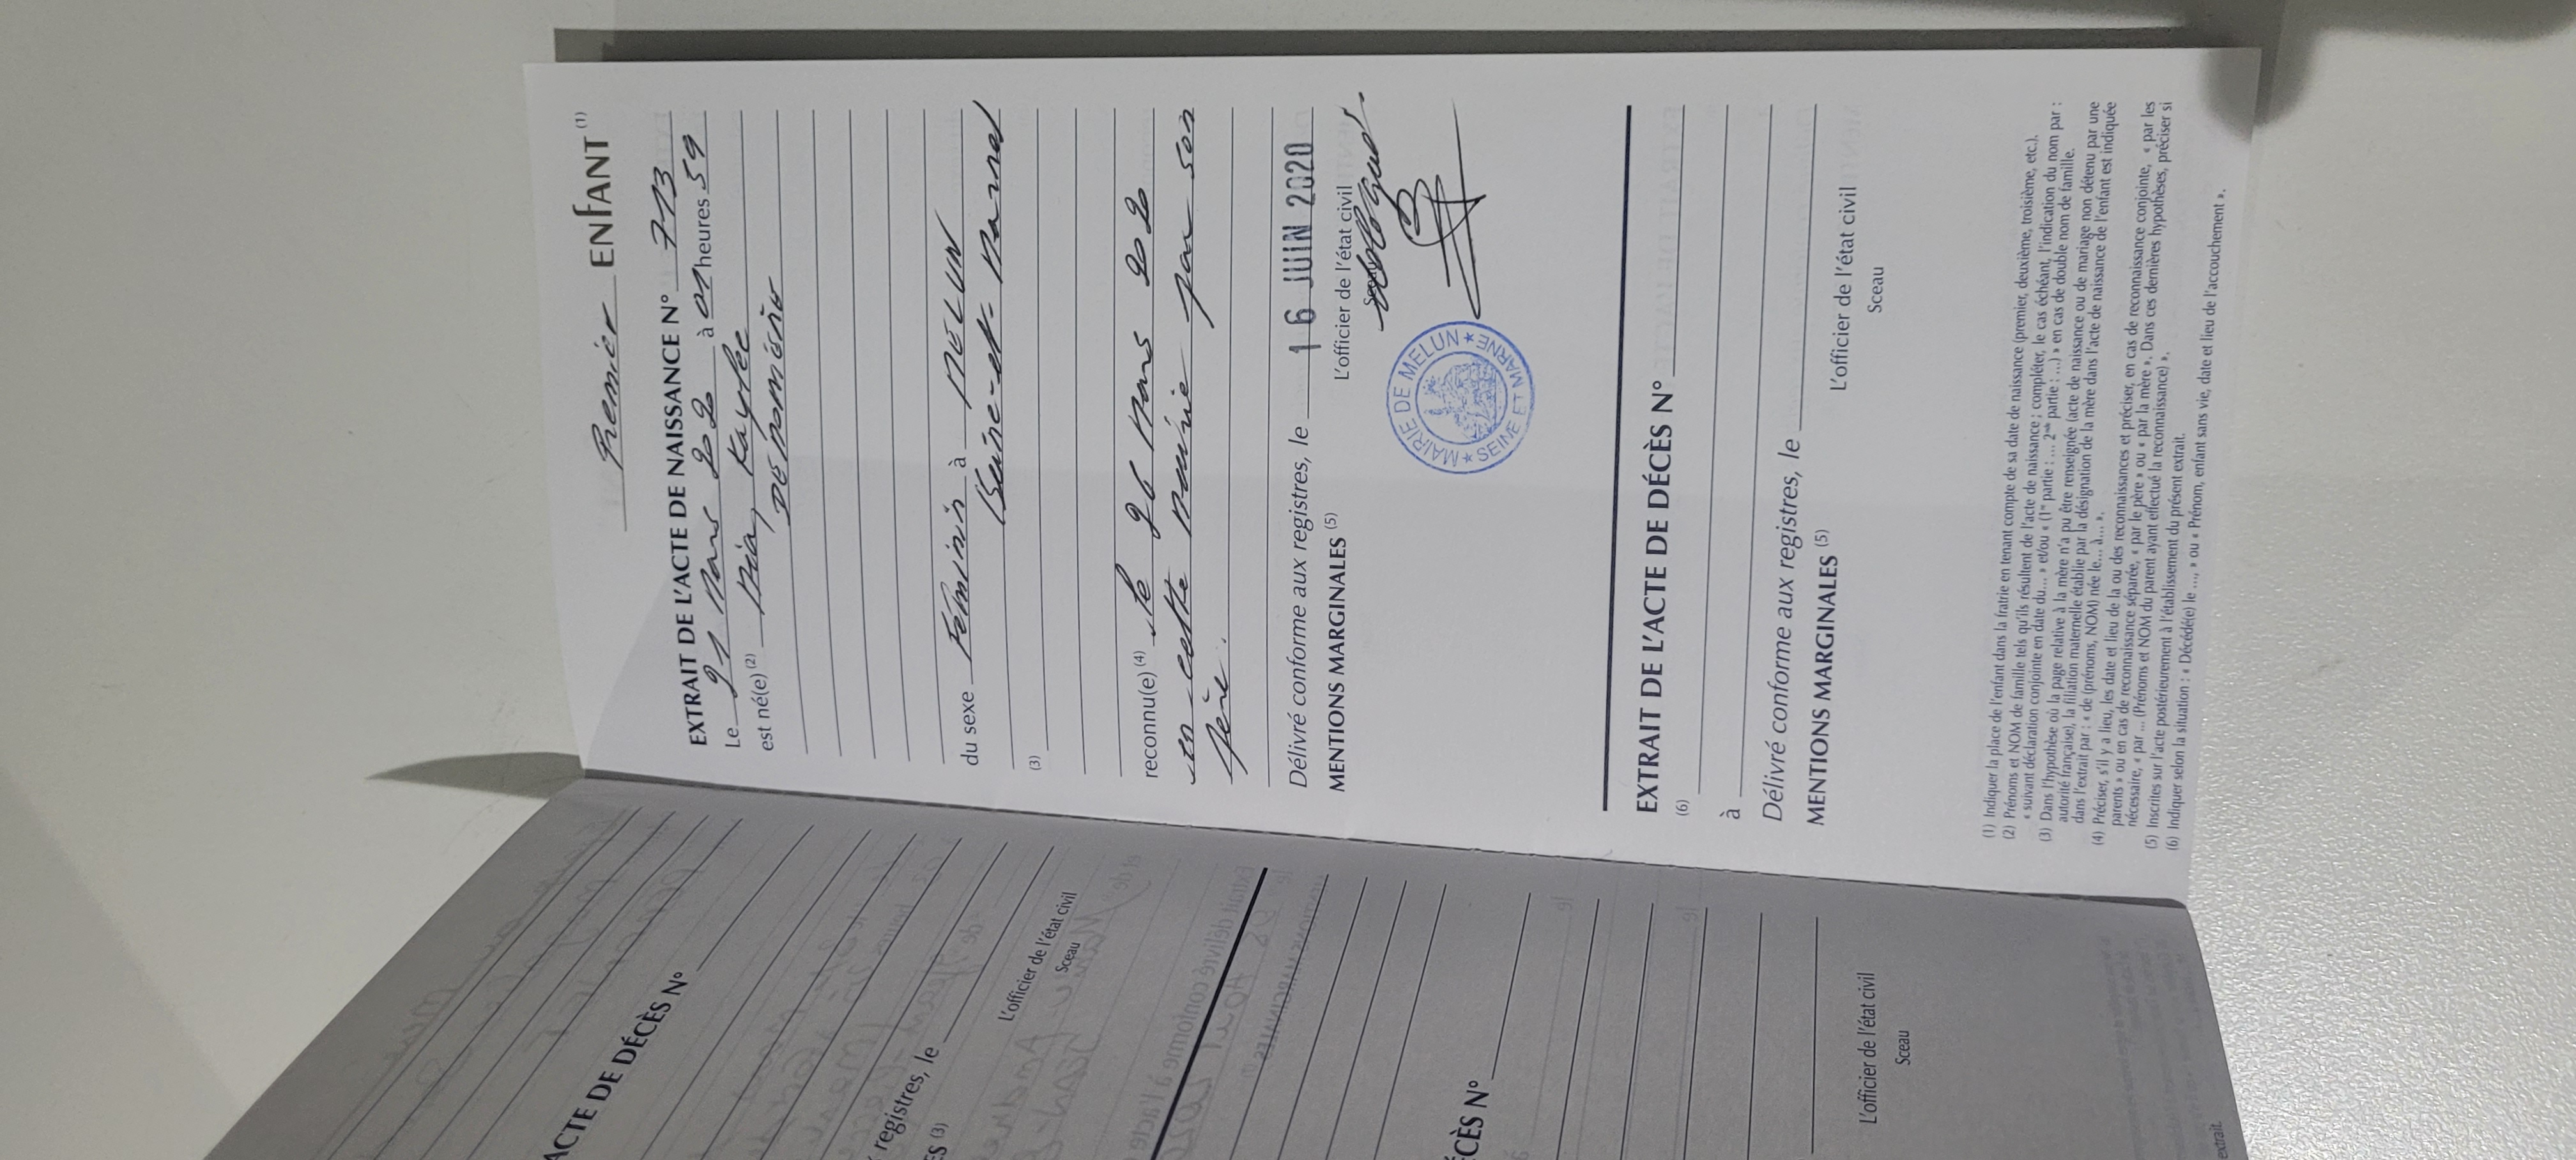 Premier ENFANT (1)
EXTRAIT DE L'ACTE DE NAISSANCE N° 713
Le 21 Mars 2020 à 01 heures 59
est né(e) (2) Kaylee
du sexe Féminin à MELUN
(Seine-et-Marne)
(3)
reconnu(e) (4) le 26 Mars 2020
en cette Mairie par son
père.
Délivré conforme aux registres, le 16 JUIN 2020
MENTIONS MARGINALES (5)
L'officier de l'état civil
Sceau
MAIRIE DE MELUN ★ SEINE ET MARNE ★
EXTRAIT DE L'ACTE DE DÉCÈS N°
(6)
à
Délivré conforme aux registres, le
MENTIONS MARGINALES (5)
L'officier de l'état civil
Sceau
(1) Indiquer la place de l'enfant dans la fratrie en tenant compte de sa date de naissance (premier, deuxième, troisième, etc.).
(2) Prénoms et NOM de famille tels qu'ils résultent de l'acte de naissance ; compléter, le cas échéant, l'indication du nom par :
« suivant déclaration conjointe en date du... » et/ou « (1re partie : ... 2nde partie : ...) » en cas de double nom de famille.
(3) Dans l'hypothèse où la page relative à la mère n'a pu être renseignée (acte de naissance ou de mariage non détenu par une
autorité française), la filiation maternelle établie par la désignation de la mère dans l'acte de naissance de l'enfant est indiquée
dans l'extrait par : « de (prénoms, NOM) née le... à... ».
(4) Préciser, s'il y a lieu, les date et lieu de la ou des reconnaissances et préciser, en cas de reconnaissance conjointe, « par les
parents » ou en cas de reconnaissance séparée, « par le père » ou « par la mère ». Dans ces dernières hypothèses, préciser si
nécessaire, « par ... (Prénoms et NOM du parent ayant effectué la reconnaissance) ».
(5) Inscrites sur l'acte postérieurement à l'établissement du présent extrait.
(6) Indiquer selon la situation : « Décédé(e) le ..., » ou « Prénom, enfant sans vie, date et lieu de l'accouchement ».
ACTE DE DÉCÈS N°
registres, le
ES (3)
L'officier de l'état civil
Sceau
ÉCÈS N°
L'officier de l'état civil
Sceau
extrait.